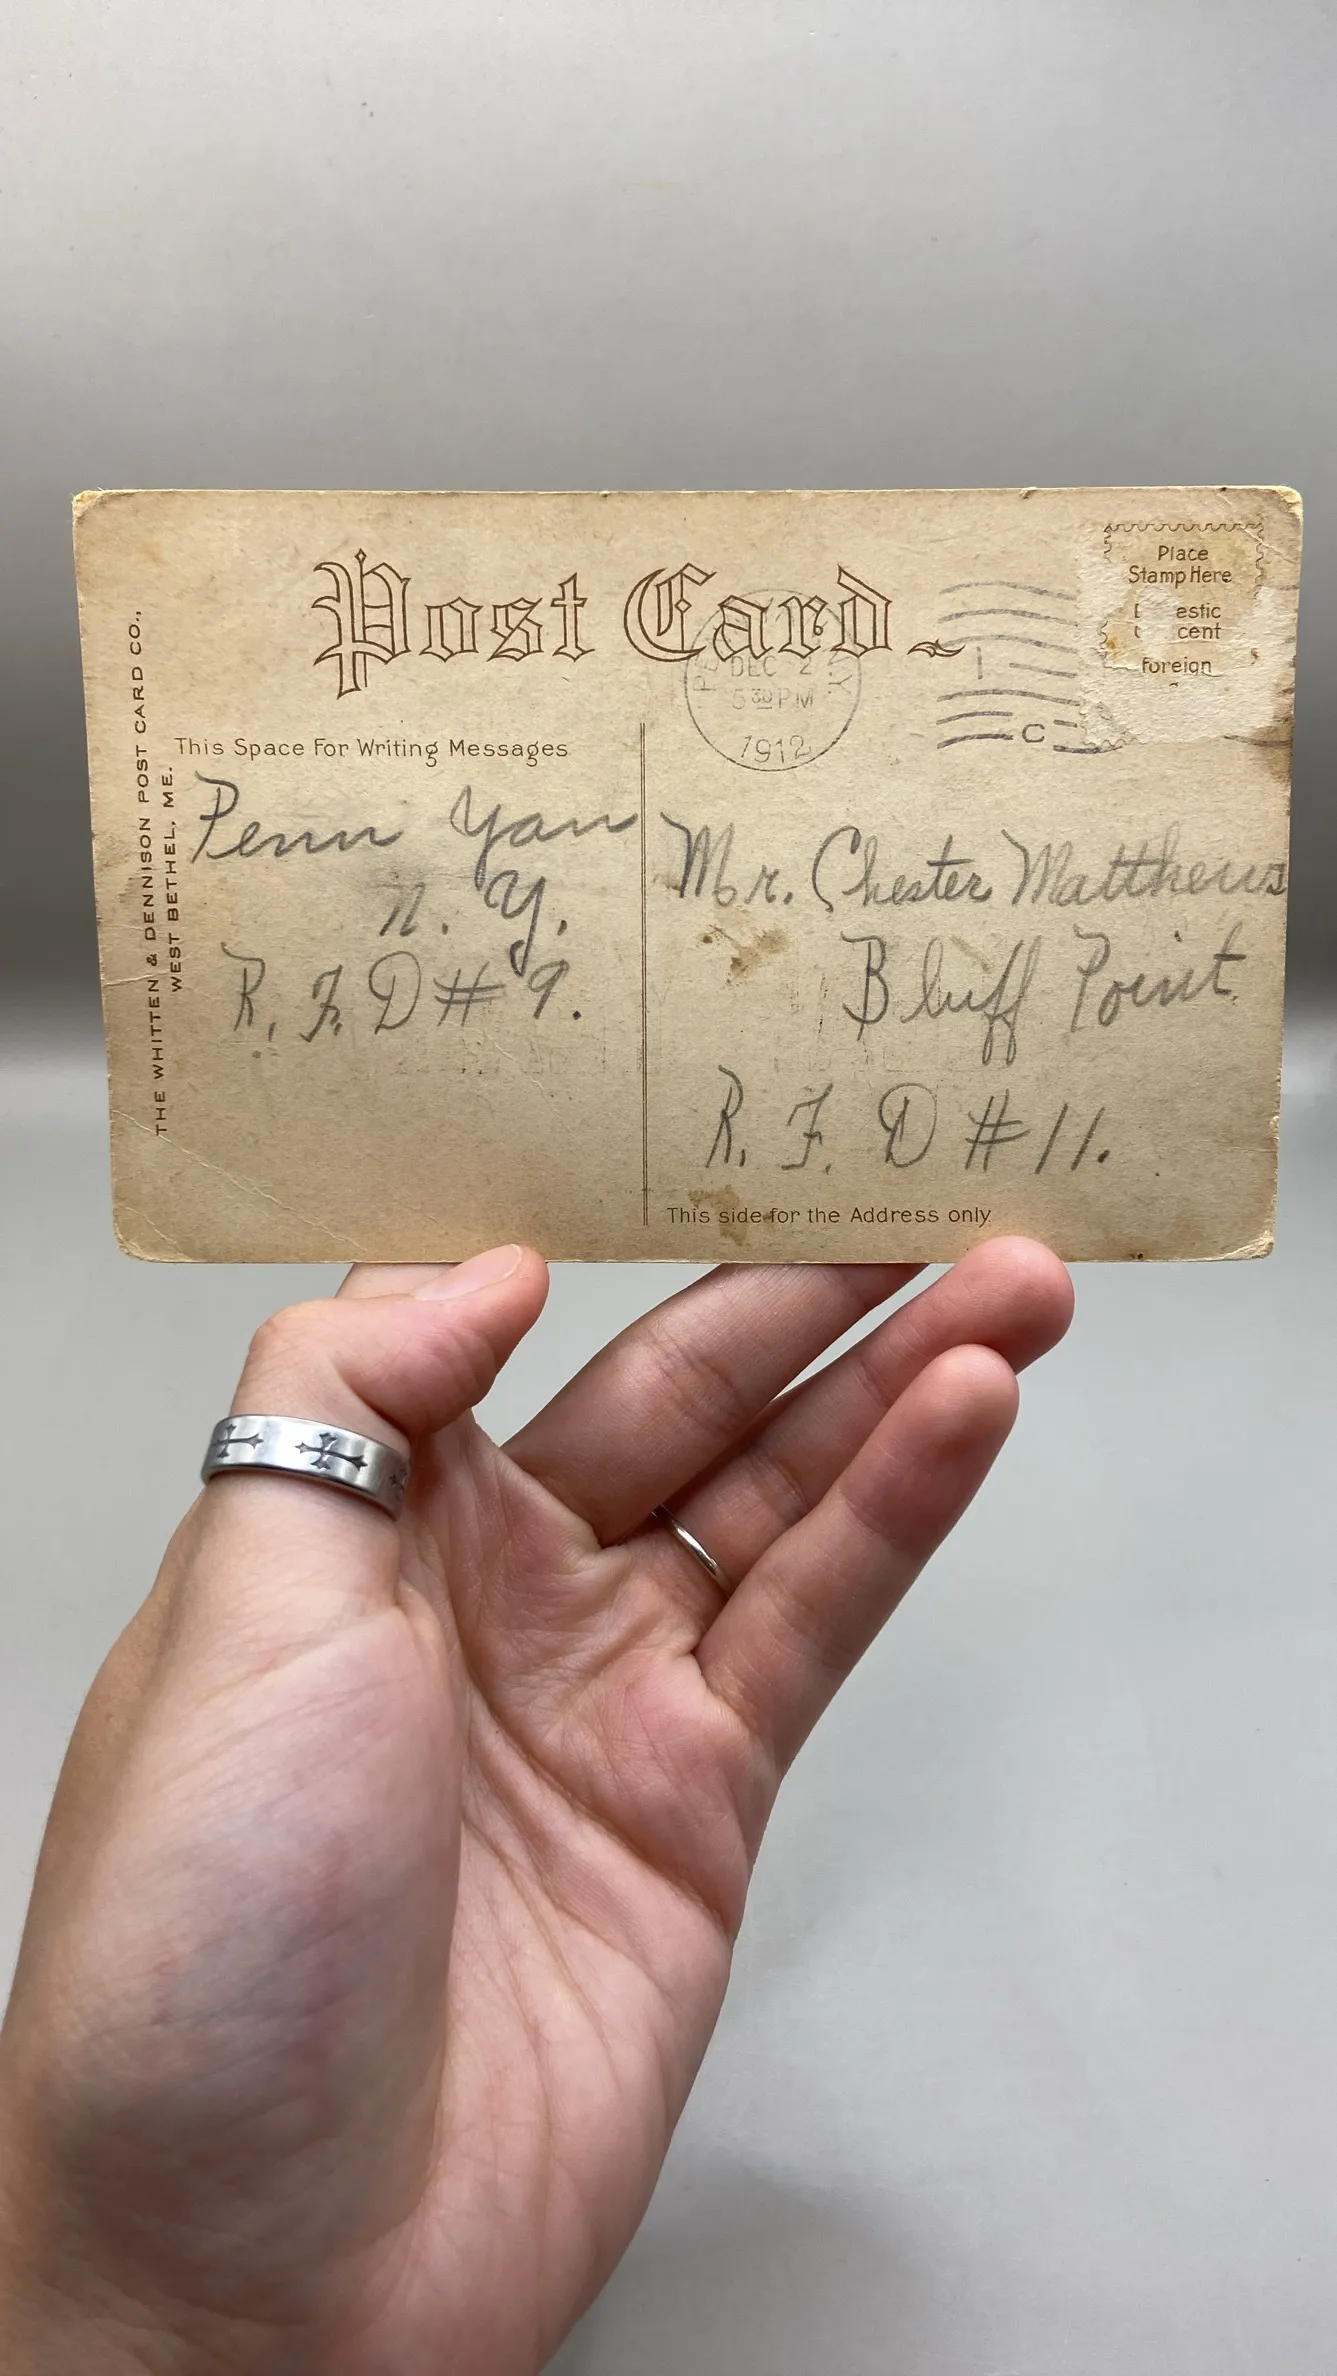 Post Card
Place
Stamp Here
cent
foreign
DEC 2
5 30 PM
1912
C
THE WHITTEN & DENNISON POST CARD CO.,
WEST BETHEL, ME.
This Space For Writing Messages
Penn Yan
N. Y.
R. F. D # 9.
Mr. Chester Matthews
Bluff Point
R. F. D # 11.
This side for the Address only